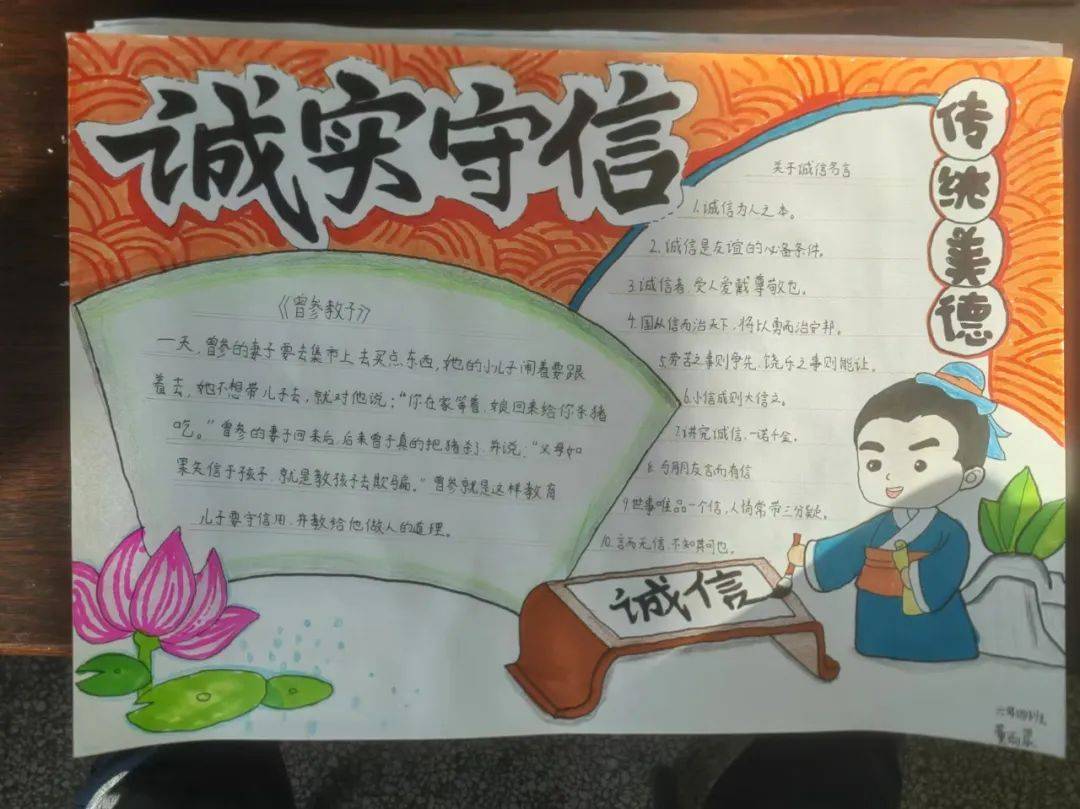 诚实守信
传统美德
《曾参教子》
一天,曾参的妻子要去集市上去买点东西,她的小儿子闹着要跟
着去,她不想带儿子去,就对他说:“你在家等着,娘回来给你杀猪
吃。”曾参的妻子回来后,后来曾子真的把猪杀了,并说:“父母如
果失信于孩子,就是教孩子去欺骗。”曾参就是这样教育
儿子要守信用,并教给他做人的道理。
关于诚信名言
1.诚信为人之本。
2.诚信是友谊的必备条件。
3.诚信者,受人爱戴尊敬也。
4.国从信而治天下,将以勇而治安邦。
5.劳苦之事则争先,饶乐之事则能让。
6.小信成则大信立。
7.讲究诚信,一诺千金。
8.与朋友言而有信
9.世事唯品一个信,人情常带三分疑。
10.言而无信,不知其可也。
诚信
六年四班